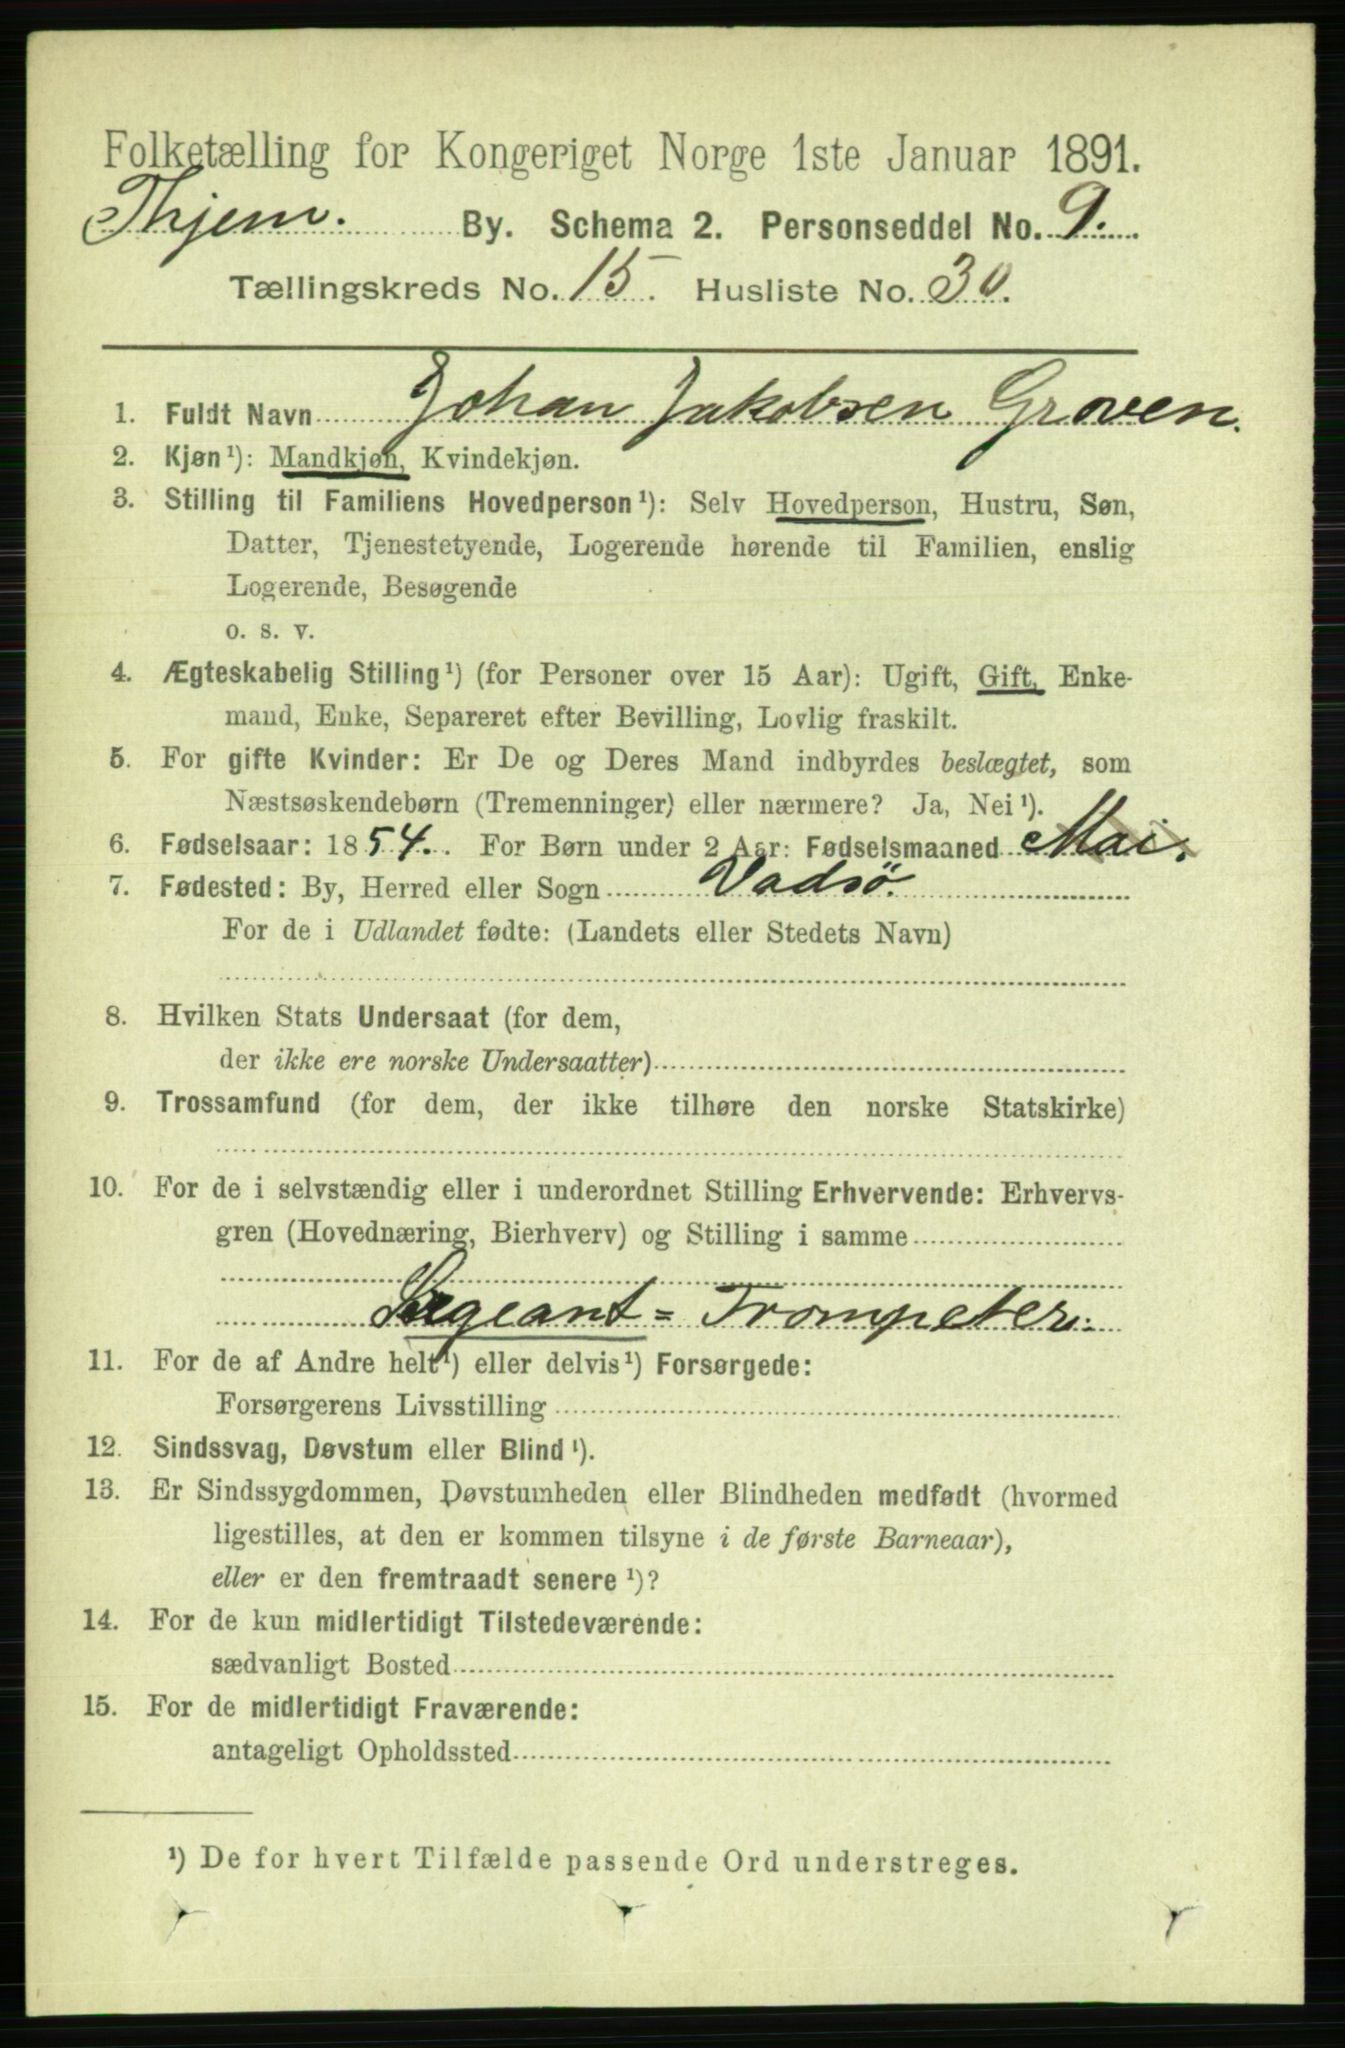 Folketælling for Kongeriget Norge 1ste Januar 1891.
Thjem. By. Schema 2. Personseddel No. 9.
Tællingskreds No. 15. Husliste No. 30.
1. Fuldt Navn Johan Jakobsen Groven.
2. Kjøn¹): Mandkjøn, Kvindekjøn.
3. Stilling til Familiens Hovedperson¹): Selv Hovedperson, Hustru, Søn,
Datter, Tjenestetyende, Logerende hørende til Familien, enslig
Logerende, Besøgende
o. s. v.
4. Ægteskabelig Stilling¹) (for Personer over 15 Aar): Ugift, Gift, Enke-
mand, Enke, Separeret efter Bevilling, Lovlig fraskilt.
5. For gifte Kvinder: Er De og Deres Mand indbyrdes beslægtet, som
Næstsøskendebørn (Tremenninger) eller nærmere? Ja, Nei¹).
6. Fødselsaar: 1854. For Børn under 2 Aar: Fødselsmaaned Mai.
7. Fødested: By, Herred eller Sogn Vadsö.
For de i Udlandet fødte: (Landets eller Stedets Navn)
8. Hvilken Stats Undersaat (for dem,
der ikke ere norske Undersaatter)
9. Trossamfund (for dem, der ikke tilhøre den norske Statskirke)
10. For de i selvstændig eller i underordnet Stilling Erhvervende: Erhvervs-
gren (Hovednæring, Bierhverv) og Stilling i samme
Sergeant = Trompeter.
11. For de af Andre helt¹) eller delvis¹) Forsørgede:
Forsørgerens Livsstilling
12. Sindssvag, Døvstum eller Blind¹).
13. Er Sindssygdommen, Døvstumheden eller Blindheden medfødt (hvormed
ligestilles, at den er kommen tilsyne i de første Barneaar),
eller er den fremtraadt senere¹)?
14. For de kun midlertidigt Tilstedeværende:
sædvanligt Bosted
15. For de midlertidigt Fraværende:
antageligt Opholdssted
¹) De for hvert Tilfælde passende Ord understreges.